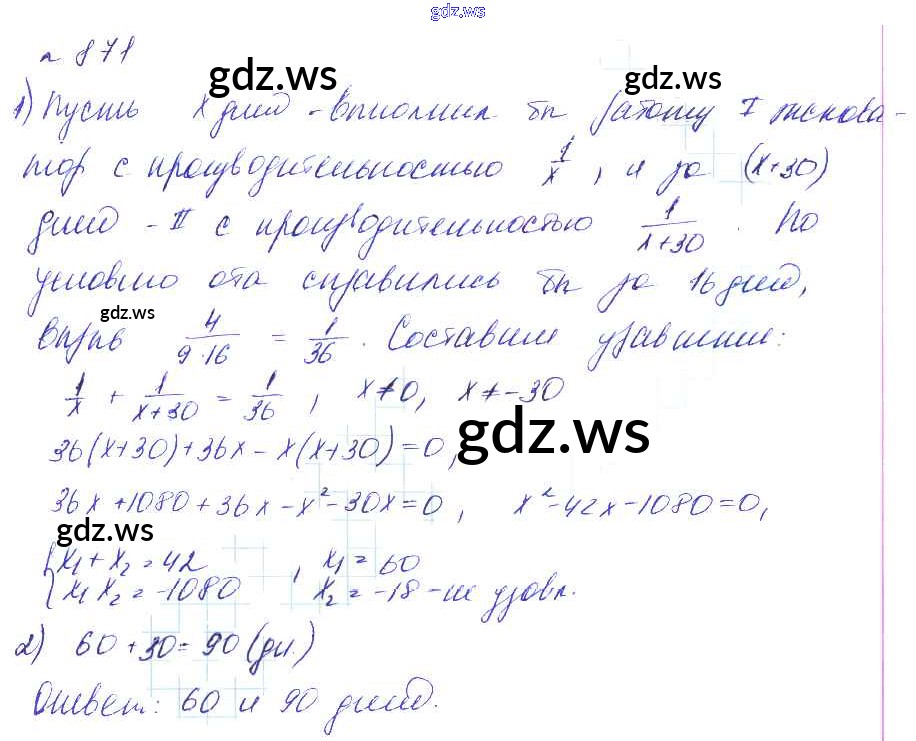 gdz.ws
n 871
gdz.ws gdz.ws
1) Пусть x дней - выполнил бы работу I экскова-
тор с производительностью 1/x, и за (x+30)
дней - II с производительностью 1/(x+30). По
условию оба справились бы за 16 дней,
gdz.ws
4/(9·16) = 1/36. Составим уравнение:
1/x + 1/(x+30) = 1/36, x≠0, x≠-30
gdz.ws
36(x+30)+36x-x(x+30)=0,
36x+1080+36x-x²-30x=0, x²-42x-1080=0,
gdz.ws
{x₁+x₂=42, x₁=60
{x₁x₂=-1080 x₂=-18-не удовл.
2) 60+30=90 (дн.)
Ответ: 60 и 90 дней.